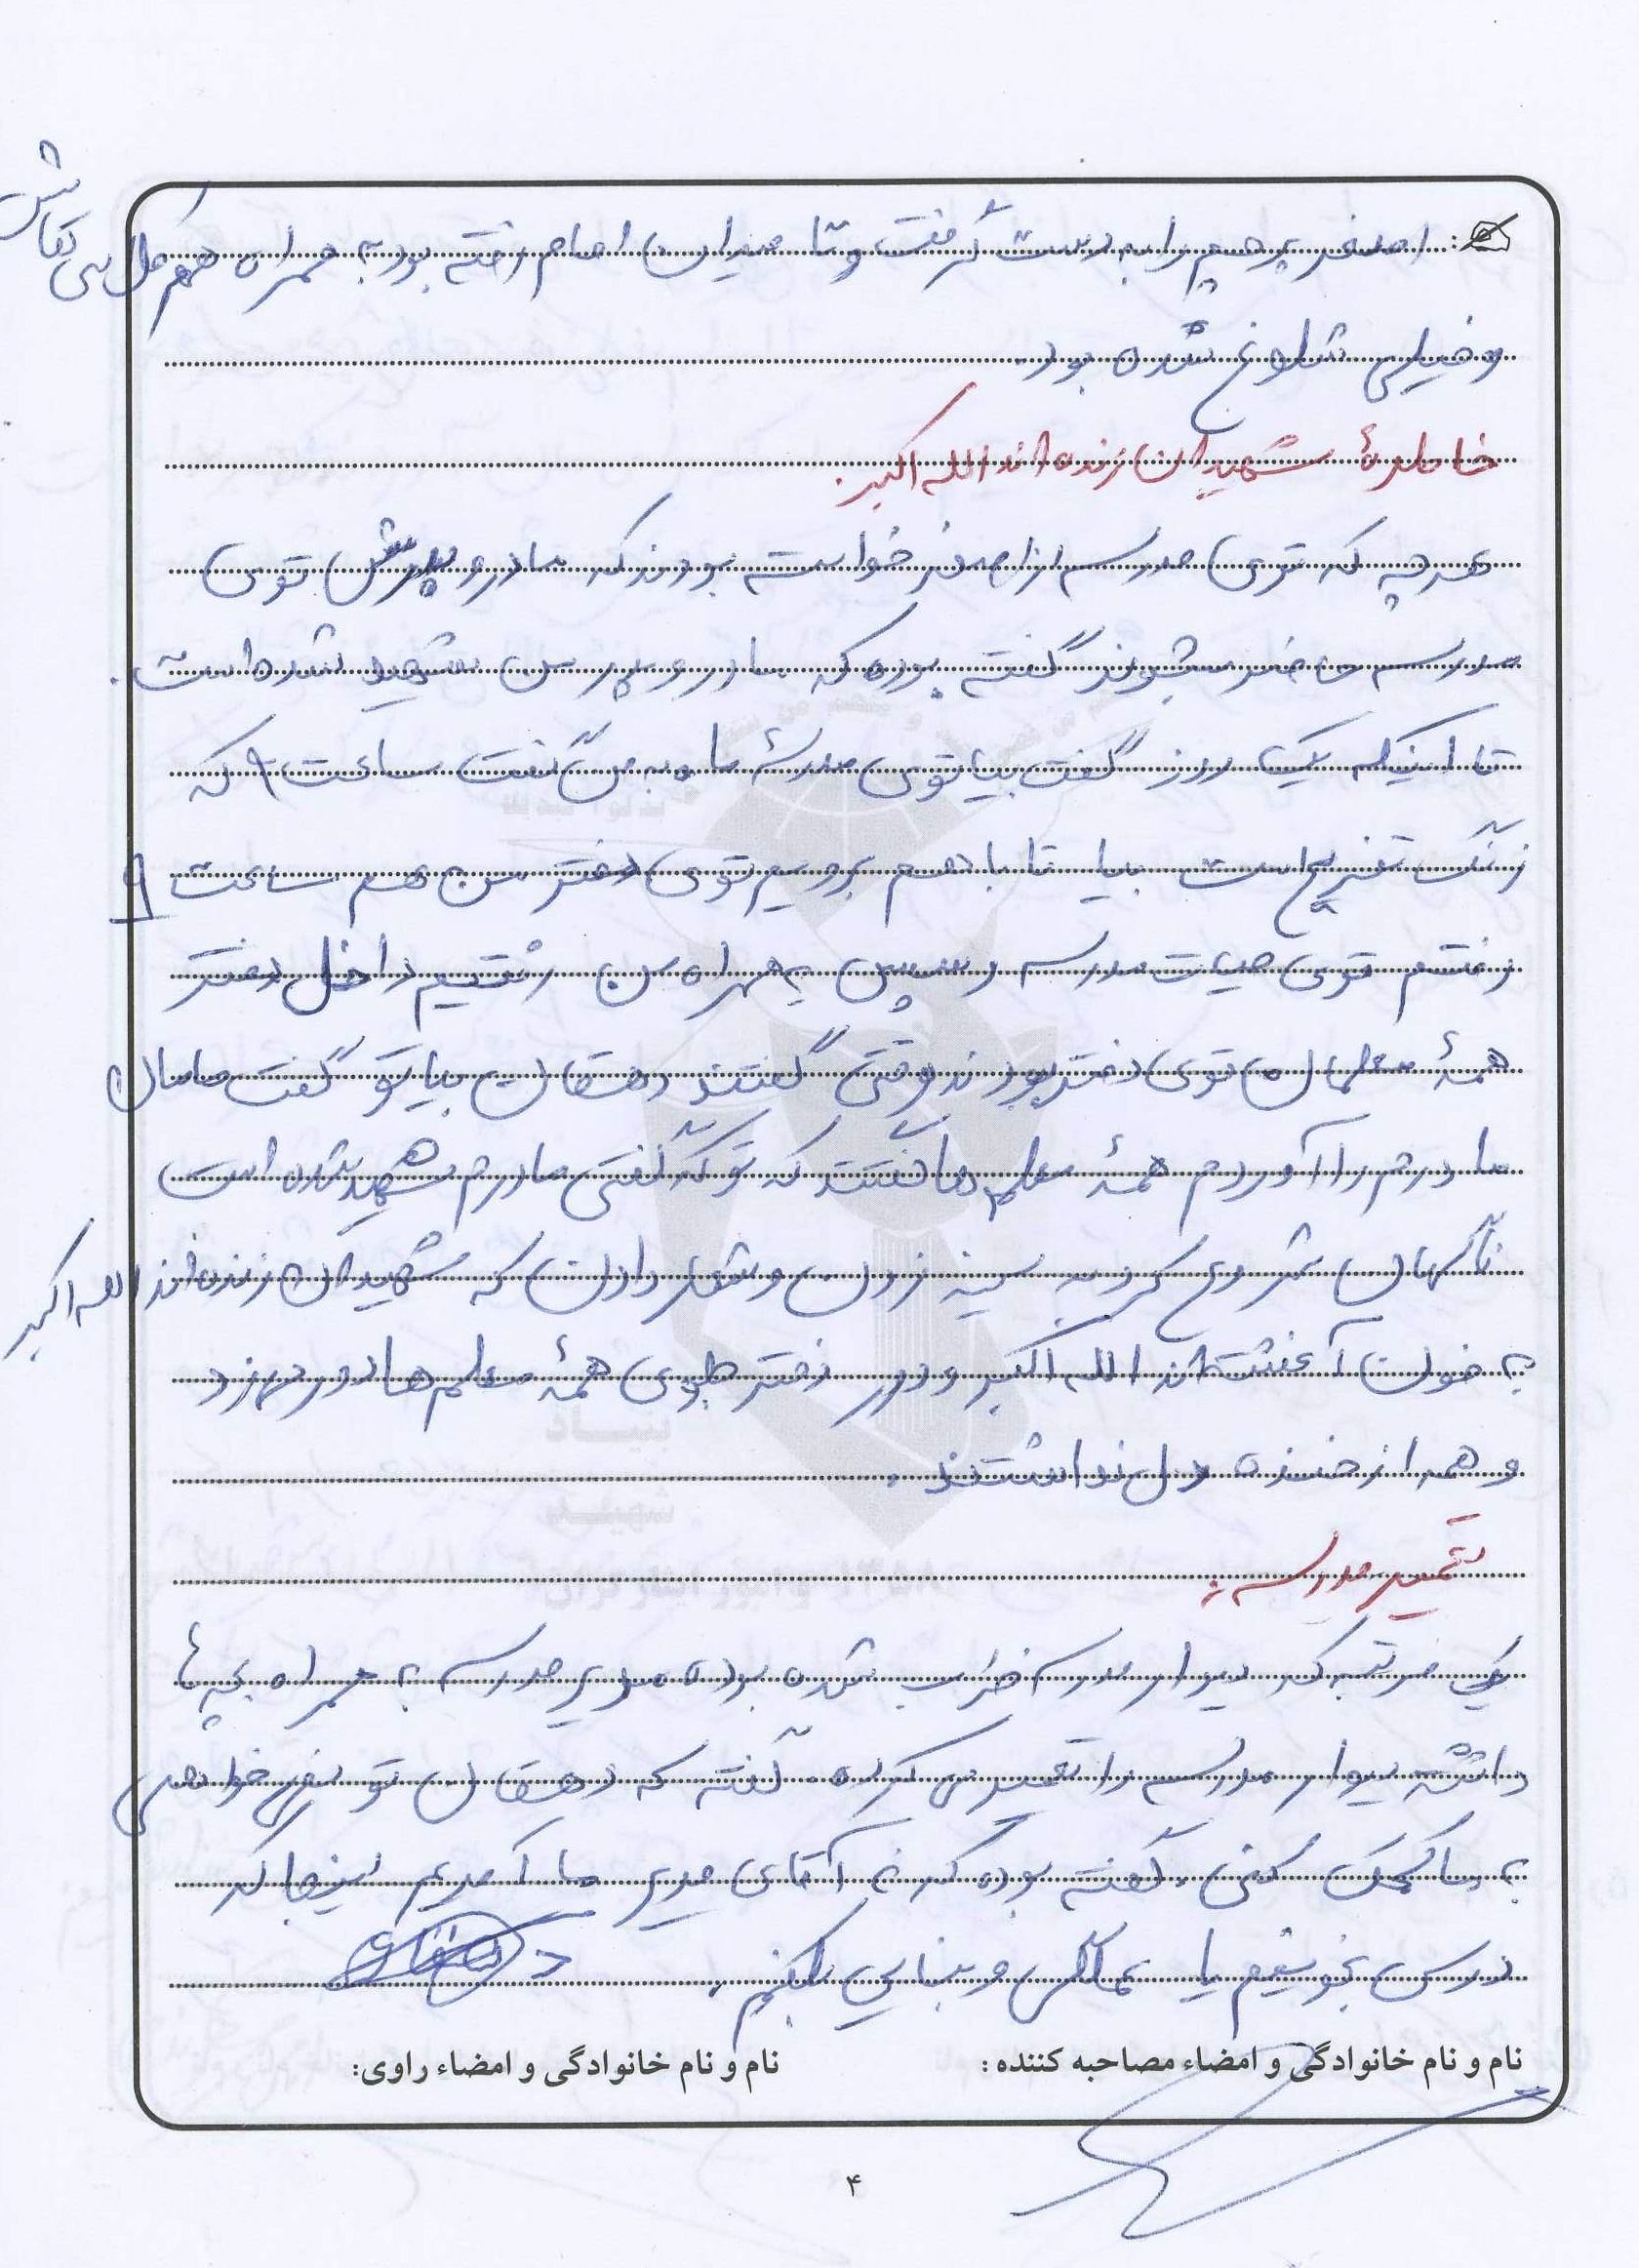 اصغر پرچم را به دست گرفت و تا میدان امام رفته بود به همراه هم کلاسی هایش
و خیلی شلوغ شده بود.
خاطرهٔ شهیدان زنده اند الله اکبر.
هرچه که توی مدرسه از اصغر خواسته بودند که مادر و پدرش توی
مدرسه حاضر بشوند گفته بوده که مادر و پدر من شهید شده است.
تا اینکه یک روز گفت بیا توی مدرسهٔ ما و به من گفت ساعت ۹ که
زنگ تفریح است بیا تا با هم برویم توی دفتر من هم ساعت ۹
رفتم توی حیات مدرسه و سپس به همراه من رفتیم داخل دفتر
همهٔ معلمان توی دفتر بودند وقتی گفتند دهقان بیا تو گفت مامان
مادرم را آوردم همهٔ معلم ها گفتند که تو که گفتی مادرم شهید شده است
ناگهان شروع کرد به سینه زدن و شعار دادن که شهیدان زنده اند الله اکبر
به خون آغشته اند الله اکبر و دور دفتر جلوی همهٔ معلم ها دور می زد
و همه از خنده دل نداشتند.
تعمیر مدرسه:
یک مرتبه که دیوار مدرسه خراب شده بوده مدیر مدرسه به همراه بچه ها
داشته دیوار مدرسه را تعمیر می کرده. گفته که دهقان تو نمی خواهی
به ما کمک کنی. گفته بوده که نه آقای مدیر ما آمدیم اینجا که
درس بخونیم یا عملگی و بنایی بکنیم.
نام و نام خانوادگی و امضاء مصاحبه کننده:
نام و نام خانوادگی و امضاء راوی:
۴